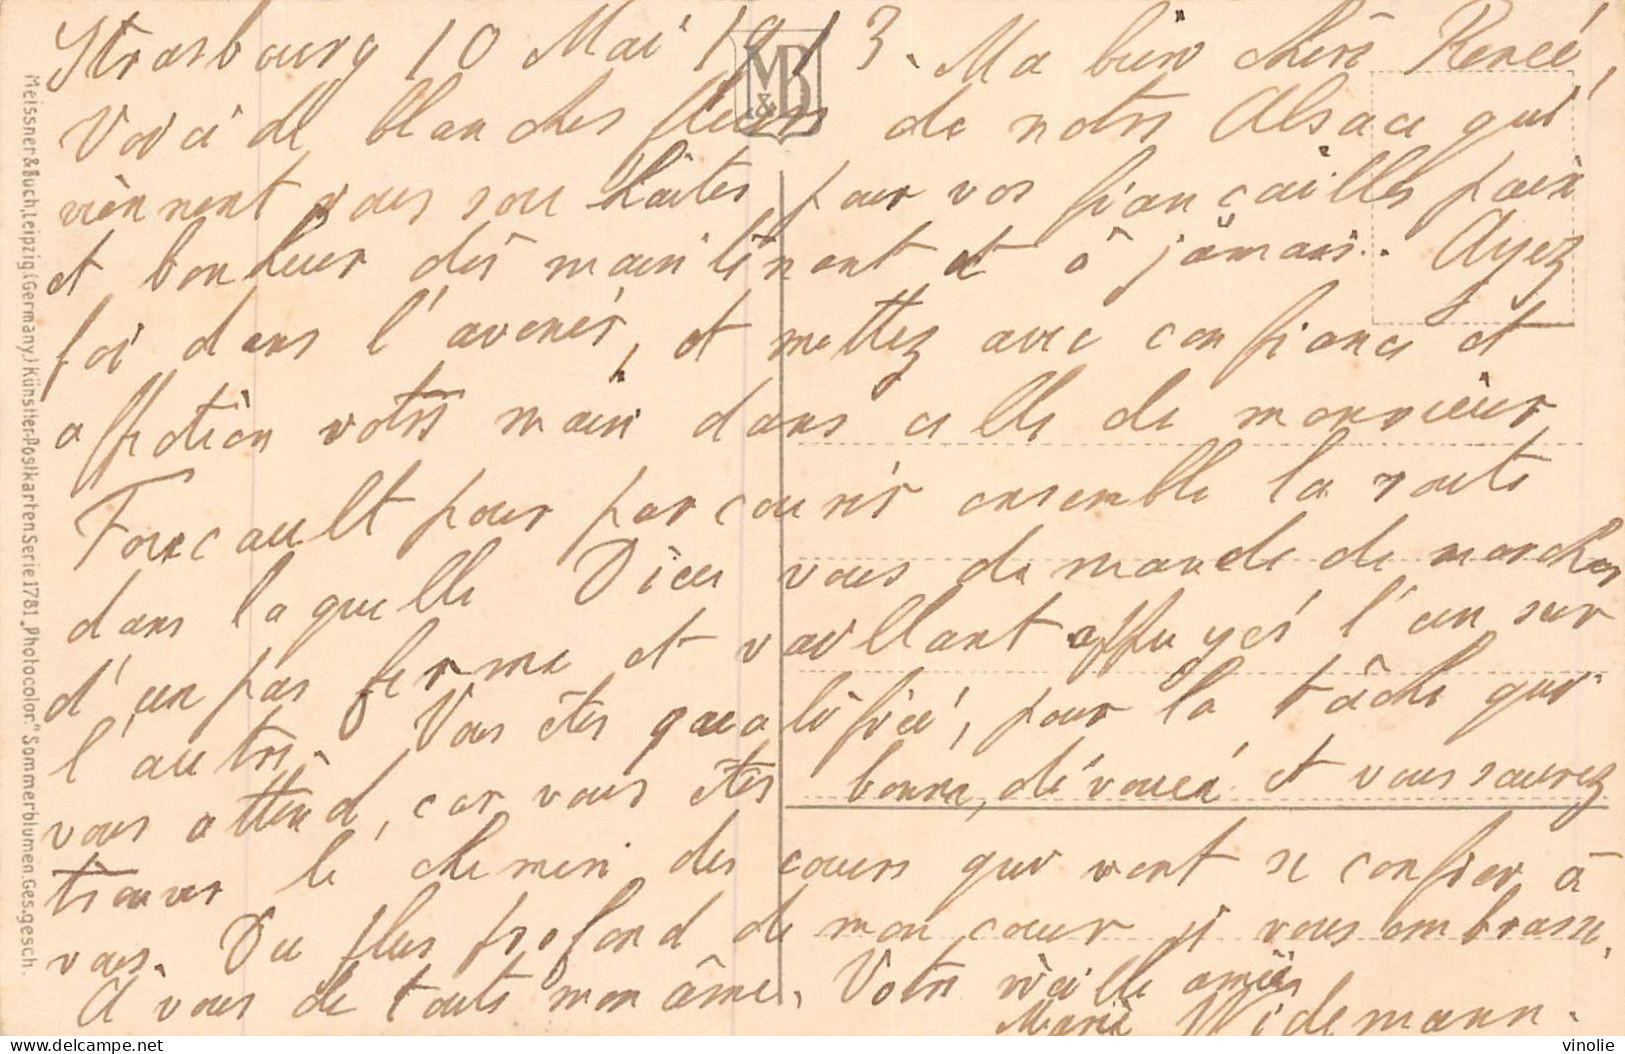 Strasbourg 10 Mai 1913. Ma bien chère Renée,
Voici de blanches fleurs de notre Alsace qui
viennent vous souhaiter pour vos fiançailles paix
et bonheur dès maintenant et à jamais. Ayez
foi dans l'avenir, et mettez avec confiance et
affection votre main dans celle de monsieur
Foucault pour parcourir ensemble la route
dans laquelle Dieu vous demande de marcher
d'un pas ferme et vaillant appuyés l'un sur
l'autre. Vous êtes qualifiée, pour la tâche qui
vous attend, car vous êtes bonne, dévouée et vous saurez
trouver le chemin des cœurs qui vont se confier à
vous. Du plus profond de mon cœur je vous embrasse.
A vous de toute mon âme. Votre vieille amie
Marie Widemann.
M&B
Meissner & Buch, Leipzig (Germany.) Künstler-Postkarten Serie 1781 „Photocolor." Sommerblumen. Ges. gesch.
https://www.delcampe.net
vinolie